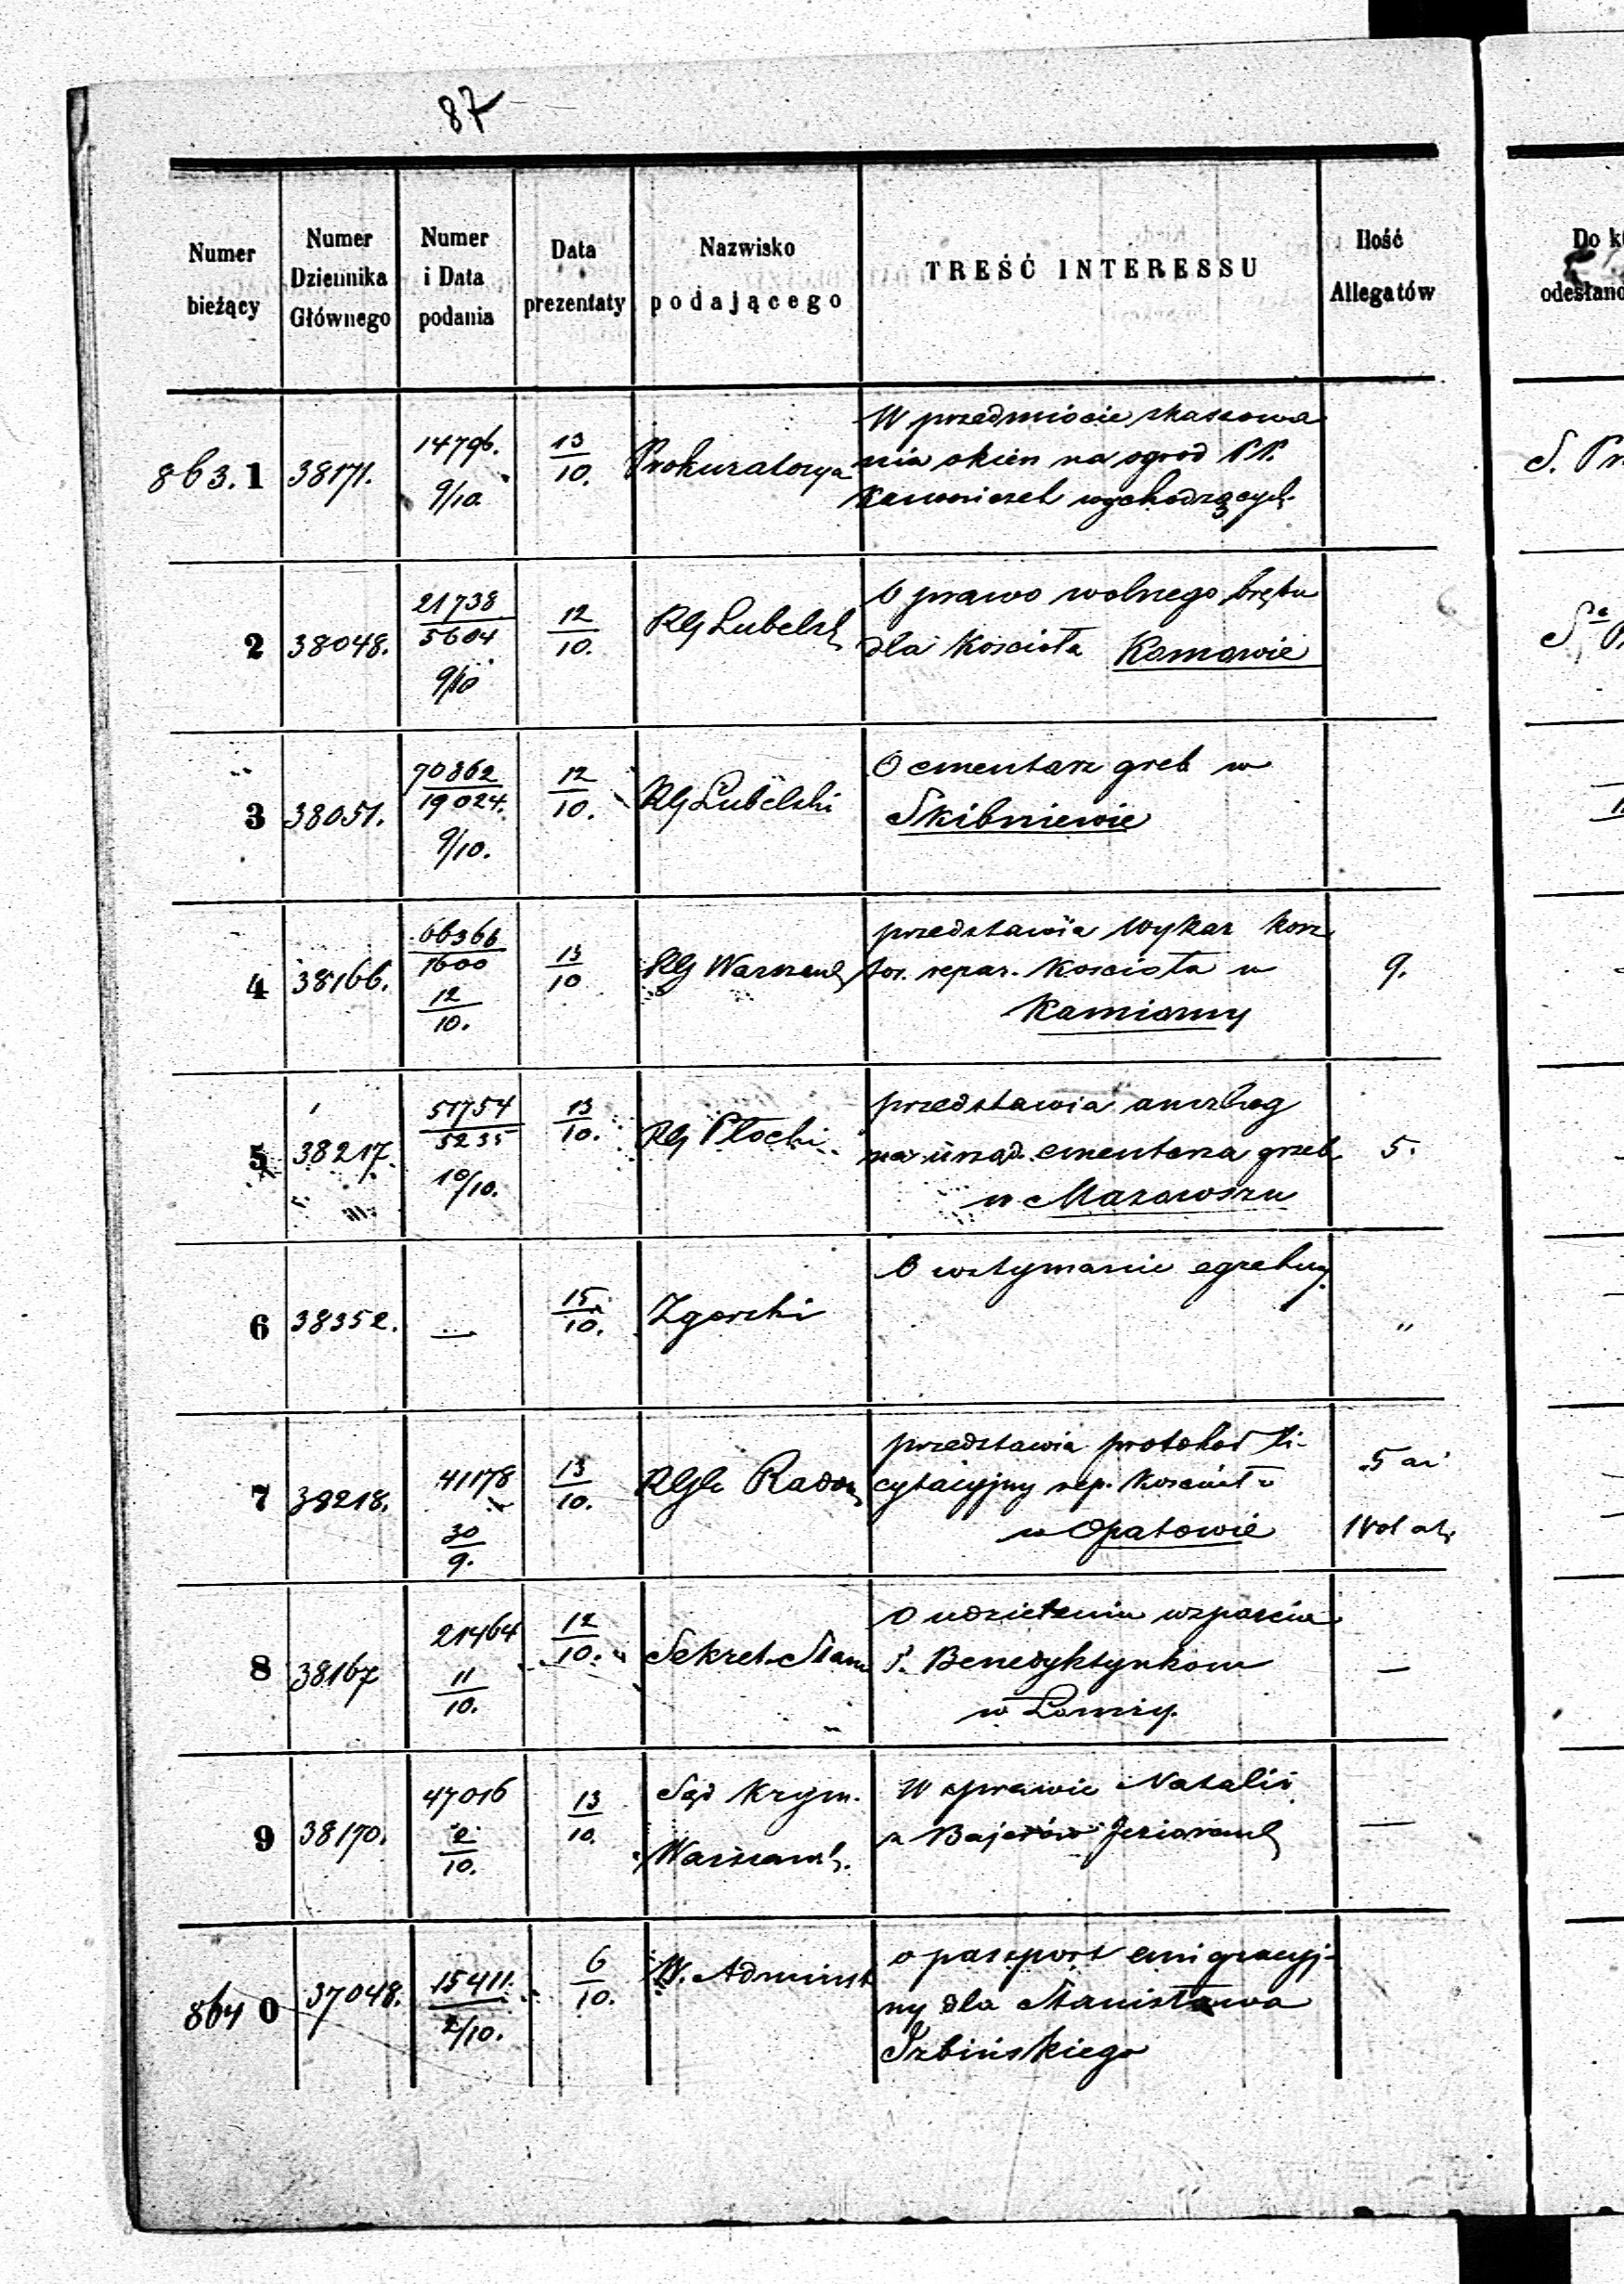 87
Numer bieżący
Numer Dziennika Głównego
Numer i Data podania
Data prezentaty
Nazwisko podającego
TREŚĆ INTERESSU
Ilość Allegatów
Do k
odesłano
863.1 38171. 14796. 9/10. 13/10. Prokuratorya
W przedmiocie skassowa
nia okien na ogrod PP.
Kanoniczek wychodzących.
S. Pr
2 38048. 21738/5604 9/10 12/10. RG Lubelsk
O prawo wolnego wrębu
dla Kościoła Komowie
3 38051. 70862/19024. 9/10. 12/10. RG Lubelski
O cmentarz greb w
Skibniewie
4 38166. 66366/1600 12/10. 13/10 RG Warszaws
przedstawia Wykaz kosz
tor. repar. Kościoła w
Kamionny
9.
5 38217. 51754/5235 10/10. 13/10. RG Płocki
przedstawia anszlag
na urząd. cmentarza grzeb
w Mazowszu
5.
6 38352. — 15/10. Zgorski
O wstymanie egzekucy.
"
7 38218. 41178 30/9. 13/10. Radom
przedstawia protokoł li-
cytacyjny rep. Kościoła
w Opatowie
5 ar
1 Vol
8 38167 21464 11/10. 12/10. Sekret. Stanu
O udzieleniu wsparcia
P. Benedyktynkom
w Łomży.
—
9 38170. 47016 2/10. 13/10. Sąd Krym.
Warszaws.
W sprawie Natalii
z Bajerów Jezioransk
—
864 0 37048. 15411. 2/10. 6/10. W. Administ
o paszport emigracyj-
ny dla Stanisława